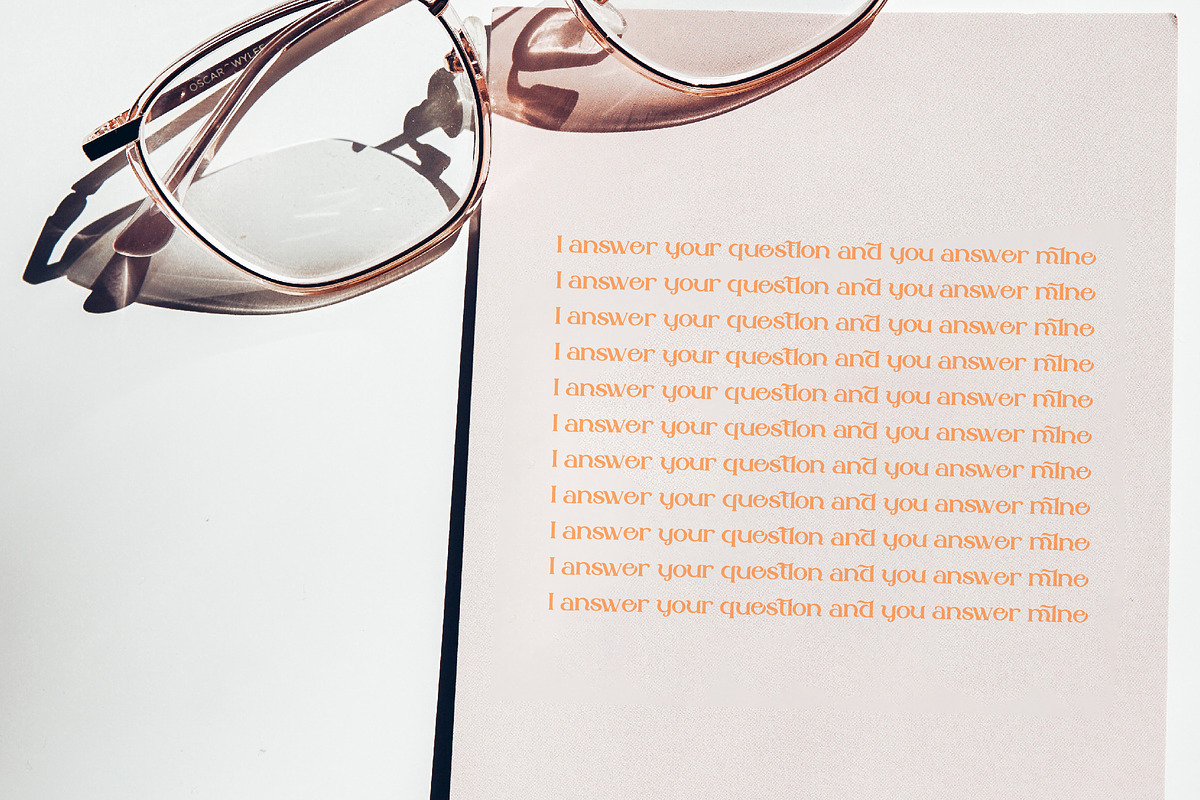 OSCAR WYLEE
I answer your question and you answer mine
I answer your question and you answer mine
I answer your question and you answer mine
I answer your question and you answer mine
I answer your question and you answer mine
I answer your question and you answer mine
I answer your question and you answer mine
I answer your question and you answer mine
I answer your question and you answer mine
I answer your question and you answer mine
I answer your question and you answer mine